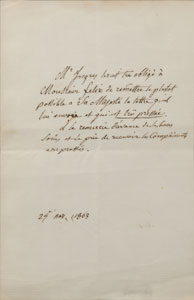 Mr Ingres serait très obligé à
Monsieur Félix de remettre le plutôt
possible à Sa Majesté la lettre qu'il
lui envoie et qui est très pressée.
Il le remercie d'avance de
soins et le prie de recevoir les compliments
empressés.
29 nov. 1863